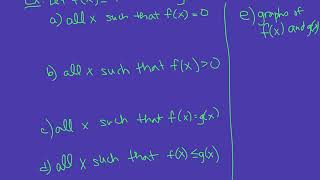 Ex: Let f(x)
a) all x such that f(x)=0
b) all x such that f(x)>0
c) all x such that f(x)=g(x)
d) all x such that f(x)≤g(x)
e) graphs of
f(x) and g(x)